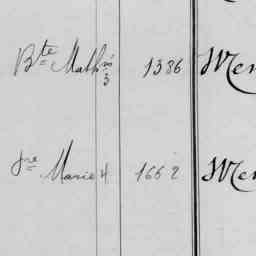 Bte Mathis 3 1386 Men
Jne Marie 4 1662 Men